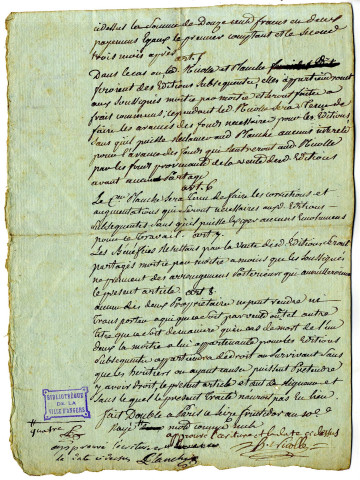 cidessus la somme de Douze cent francs en deux
payemens Egaux le premier comptant et le second
trois mois après
art. 5
Dans le cas où led. Nicolle et Planche
feroient des Editions subsequentes elles appartiendront
aux Soussignés moitié par moitié et seront faites à
frais communs; cependant led. Nicolle sera tenu de
faire les avances des fonds necessaire pour les Editions
sans qu'il puisse reclamer aud. Planche aucun interet
pour l'avance des fonds qui rentreront aud. Nicolle
par les fonds provenants de la vente desd. Editions
avant aucun partage
art. 6
Le Cen. Planche sera tenu de faire les corrections et
augmentations qui seront necessaires auxd. Editions
subsequentes sans qu'il puisse exiger aucuns emolumens
pour ce travail. art. 7.
Les Benefices resultans par la Vente desd. Editions seront
partagés moitié par moitié a moins que les Soussignés
ne prennent des arrangemens posterieurs qui annulleroient
le present article. art. 8.
aucun des deux Proprietaires ne peut vendre ni
transporter a qui que ce soit par vente ou tel autre
titre que ce soit de maniere qu'en cas de mort de l'un
d'eux la moitié a lui appartenante pour les Editions
subsequentes appartiendra de droit au survivant sans
que les heritiers ou ayant cause puissent Pretendre
y avoir droit le present article est de Rigueur et
sans lequel le present Traité n'auroit pas eu lieu
fait Double a Paris le seize fructidor an
mot rayé nul
approuvé l'ecriture et la date ci dessus
approuvé l'écriture et
la date ci dessus
Planche
Nicolle
BIBLIOTHÈQUE
DE LA
VILLE D'ANGERS